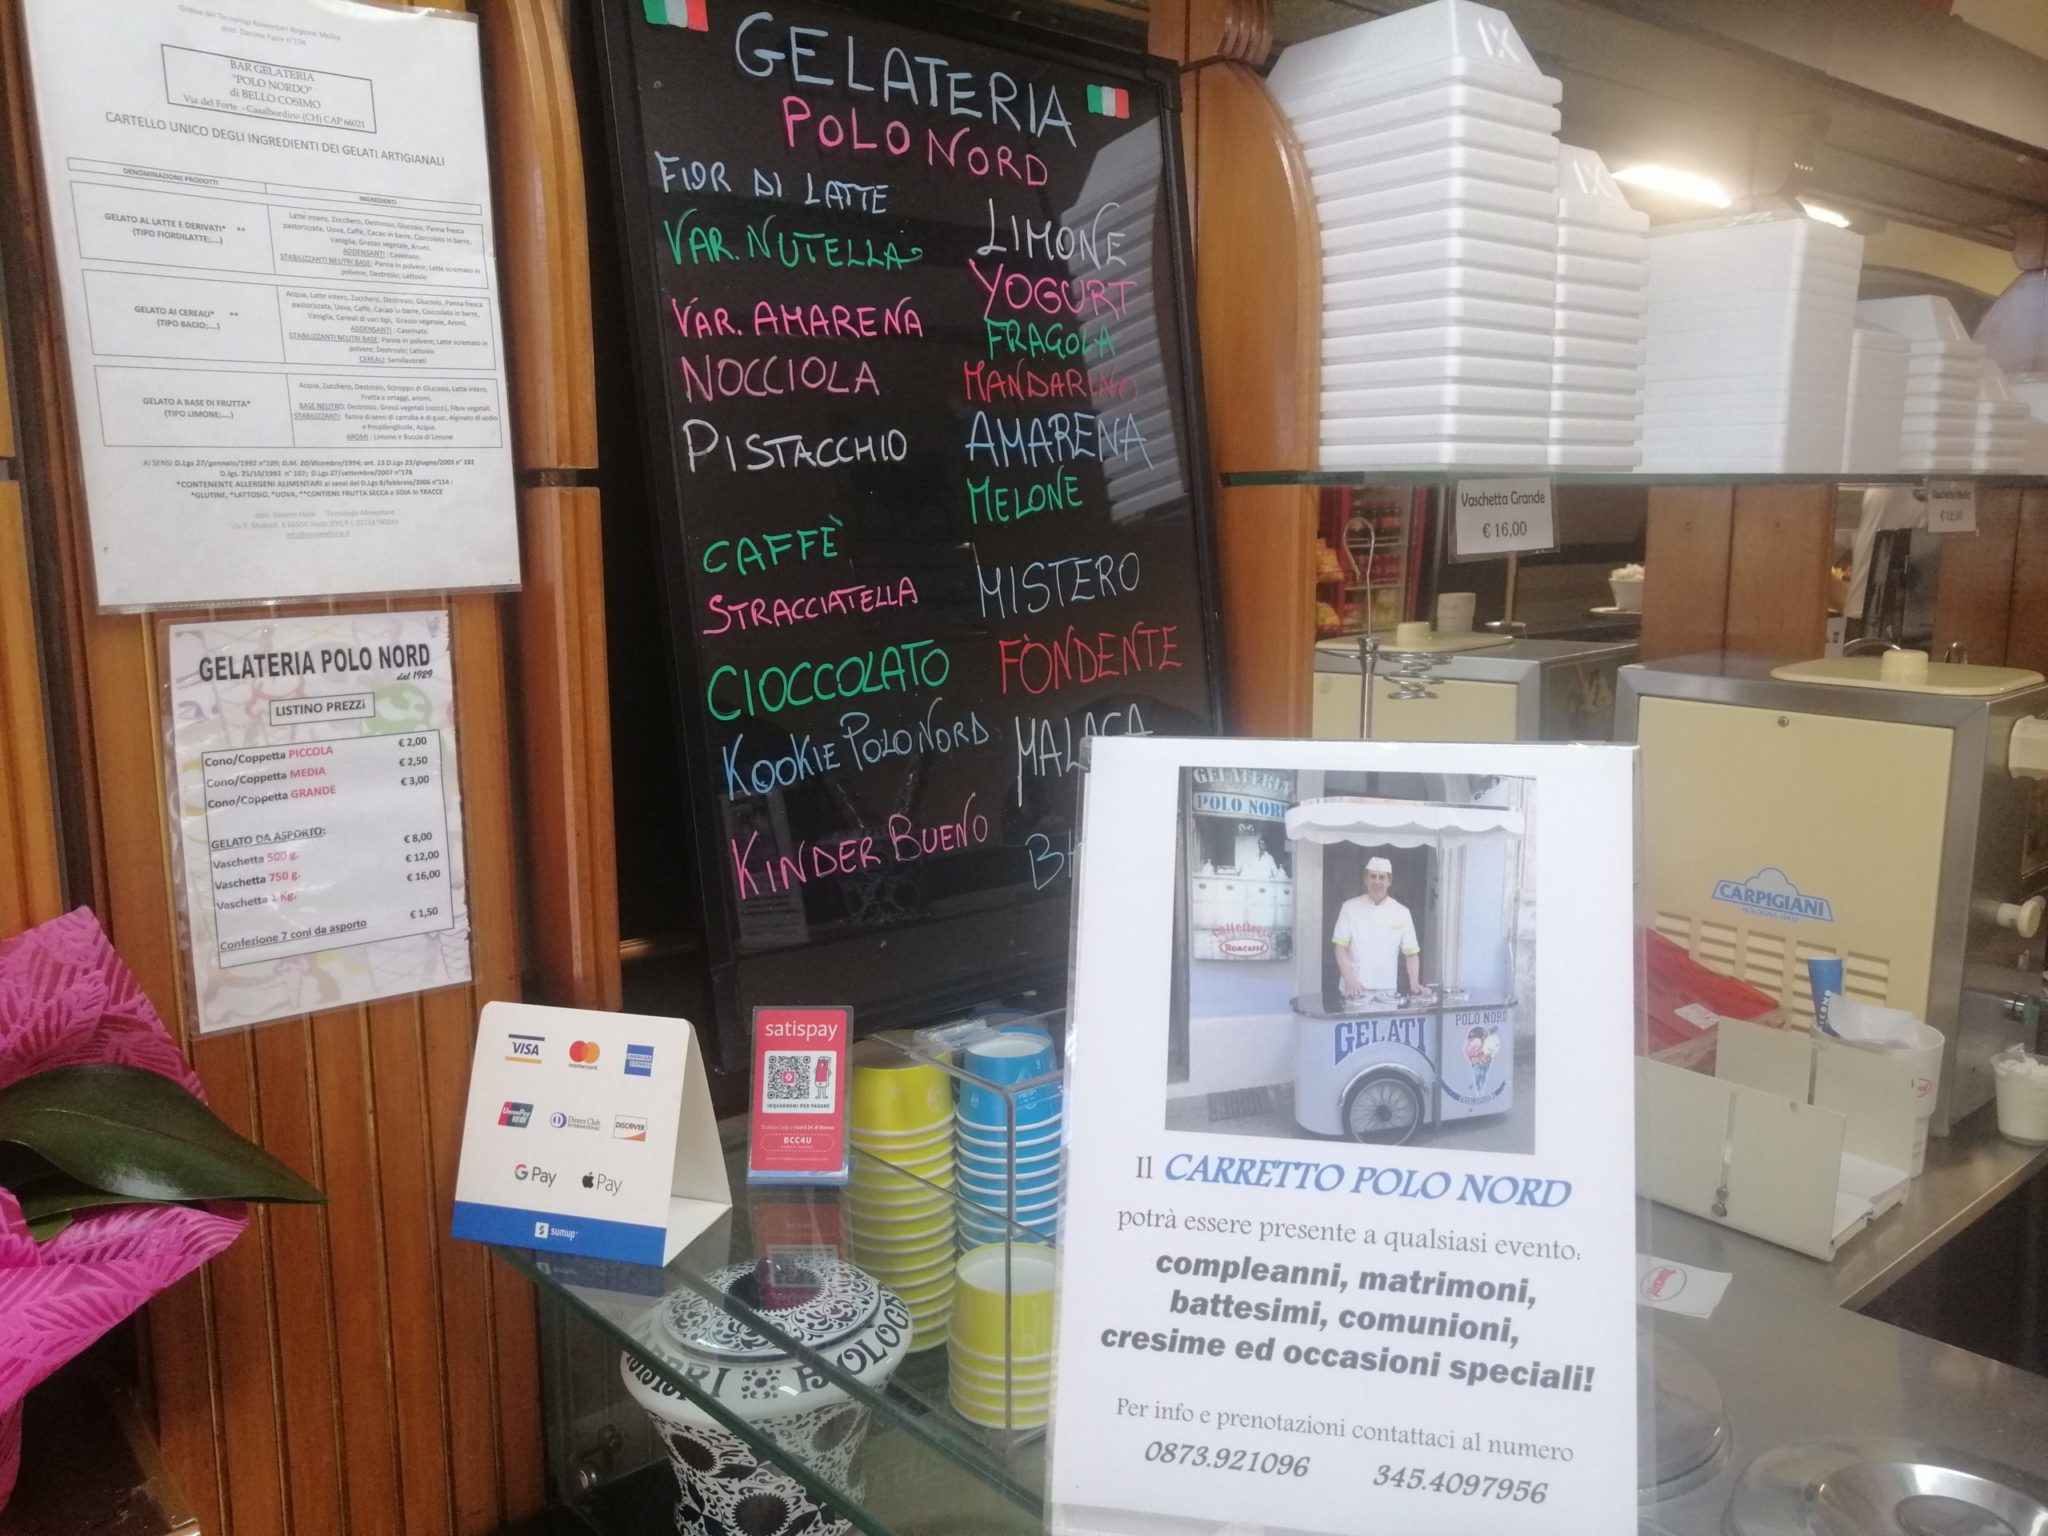 Ordine dei Tecnologi Alimentari Regione Molise
dott. Daniele Fiore n°104
BAR GELATERIA
"POLO NORDO"
di BELLO COSIMO
Via del Forte - Casalbordino (CH) CAP 66021
CARTELLO UNICO DEGLI INGREDIENTI DEI GELATI ARTIGIANALI
DENOMINAZIONE PRODOTTI
INGREDIENTI
GELATO AL LATTE E DERIVATI* **
(TIPO FIORDILATTE;....)
Latte intero, Zucchero, Destrosio, Glucosio, Panna fresca
pastorizzata, Uova, Caffè, Cacao in barre, Cioccolato in barre,
Vaniglia, Grasso vegetale, Aromi.
ADDENSANTI : Caseinato.
STABILIZZANTI NEUTRI BASE: Panna in polvere; Latte scremato in
polvere; Destrosio; Lattosio
GELATO AI CEREALI* **
(TIPO BACIO;....)
Acqua, Latte intero, Zucchero, Destrosio, Glucosio, Panna fresca
pastorizzata, Uova, Caffè, Cacao in barre, Cioccolato in barre,
Vaniglia, Cereali di vari tipi, Grasso vegetale, Aromi.
ADDENSANTI : Caseinato.
STABILIZZANTI NEUTRI BASE: Panna in polvere; Latte scremato in
polvere; Destrosio; Lattosio
CEREALI: Semilavorati
GELATO A BASE DI FRUTTA*
(TIPO LIMONE;....)
Acqua, Zucchero, Destrosio, Sciroppo di Glucosio, Latte intero,
Frutta e ortaggi, aromi,
BASE NEUTRO: Destrosio, Grassi vegetali (cocco), Fibre vegetali.
STABILIZZANTI: farina di semi di carruba e di guar, Alginato di sodio
e Propilenglicole, Acqua.
AROMI : Limone e Buccia di Limone
AI SENSI D.Lgs 27/gennaio/1992 n°109; D.M. 20/dicembre/1994; art. 13 D.Lgs 23/giugno/2003 n° 181
D.lgs. 25/10/1992 n° 107; D.Lgs 27/settembre/2007 n°178
*CONTENENTE ALLERGENI ALIMENTARI ai sensi del D.Lgs 8/febbraio/2006 n°114 :
*GLUTINE, *LATTOSIO, *UOVA, **CONTIENE FRUTTA SECCA e SOIA in TRACCE
dott. Daniele Fiore Tecnologo Alimentare
GELATERIA POLO NORD
dal 1929
LISTINO PREZZi
Cono/Coppetta PICCOLA € 2,00
Cono/Coppetta MEDIA € 2,50
Cono/Coppetta GRANDE € 3,00
GELATO DA ASPORTO:
Vaschetta 500 g. € 8,00
Vaschetta 750 g. € 12,00
Vaschetta 1 Kg. € 16,00
Confezione 7 coni da asporto € 1,50
GELATERIA
POLO NORD
FIOR DI LATTE
VAR. NUTELLA
VAR. AMARENA
NOCCIOLA
PISTACCHIO
CAFFÈ
STRACCIATELLA
CIOCCOLATO
KOOKIE POLO NORD
KINDER BUENO
LIMONE
YOGURT
FRAGOLA
MANDARINO
AMARENA
MELONE
MISTERO
FONDENTE
MALAGA
Vaschetta Grande
€ 16,00
Vaschetta Media
€ 12,00
CARPIGIANI
VISA
mastercard
AMERICAN EXPRESS
UnionPay
Diners Club
INTERNATIONAL
DISCOVER
G Pay
Pay
sumup
satispay
INQUADRAMI PER PAGARE
BCC4U
GELATERIA
POLO NORD
ROMCAFFÈ
GELATI
POLO NORD
Il CARRETTO POLO NORD
potrà essere presente a qualsiasi evento:
compleanni, matrimoni,
battesimi, comunioni,
cresime ed occasioni speciali!
Per info e prenotazioni contattaci al numero
0873.921096 345.4097956